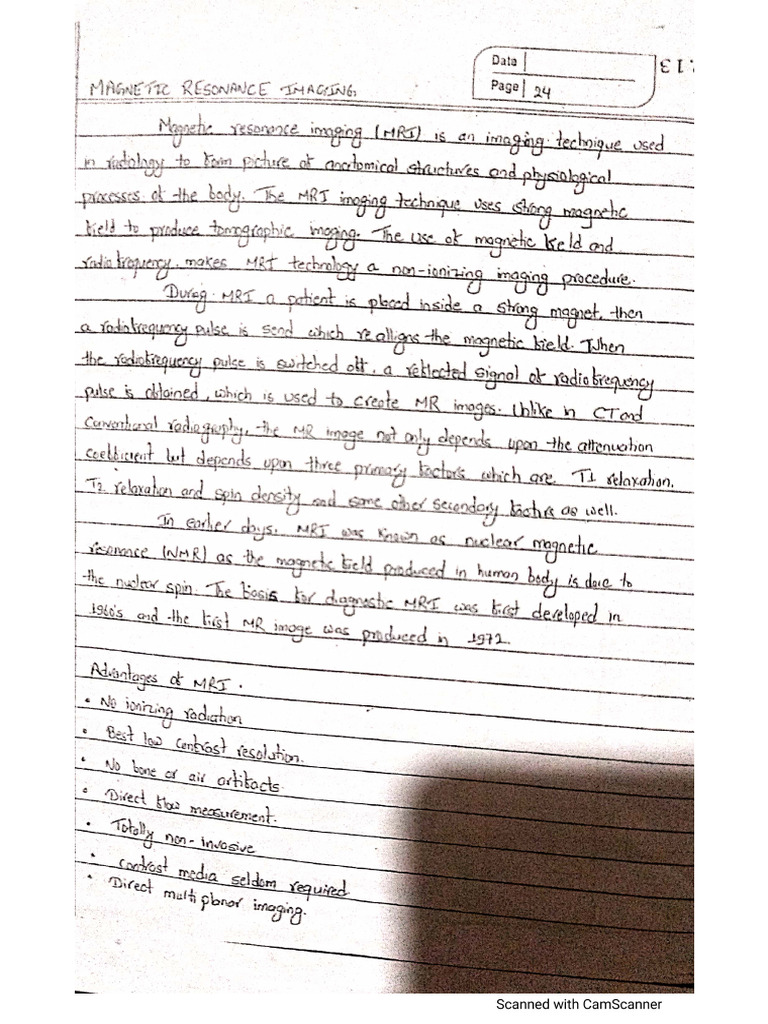 Date
Page 24
MAGNETIC RESONANCE IMAGING
Magnetic resonance imaging (MRI) is an imaging technique used
in radiology to form picture of anatomical structures and physiological
processes of the body. The MRI imaging technique uses strong magnetic
field to produce tomographic imaging. The use of magnetic field and
radiofrequency makes MRI technology a non-ionizing imaging procedure.
During MRI a patient is placed inside a strong magnet, then
a radiofrequency pulse is send which realligns the magnetic field. When
the radiofrequency pulse is switched off, a reflected signal of radiofrequency
pulse is obtained, which is used to create MR images. Unlike in CT and
conventional radiography, the MR image not only depends upon the attenuation
coefficient but depends upon three primary factors which are T1 relaxation,
T2 relaxation and spin density and some other secondary factors as well.
In earlier days, MRI was known as nuclear magnetic
resonance (NMR) as the magnetic field produced in human body is due to
the nuclear spin. The basis for diagnostic MRI was first developed in
1960's and the first MR image was produced in 1972.
Advantages of MRI.
• No ionizing radiation
• Best low contrast resolution.
• No bone or air artifacts.
• Direct flow measurement.
• Totally non-invasive
• Contrast media seldom required
• Direct multiplanar imaging.
Scanned with CamScanner